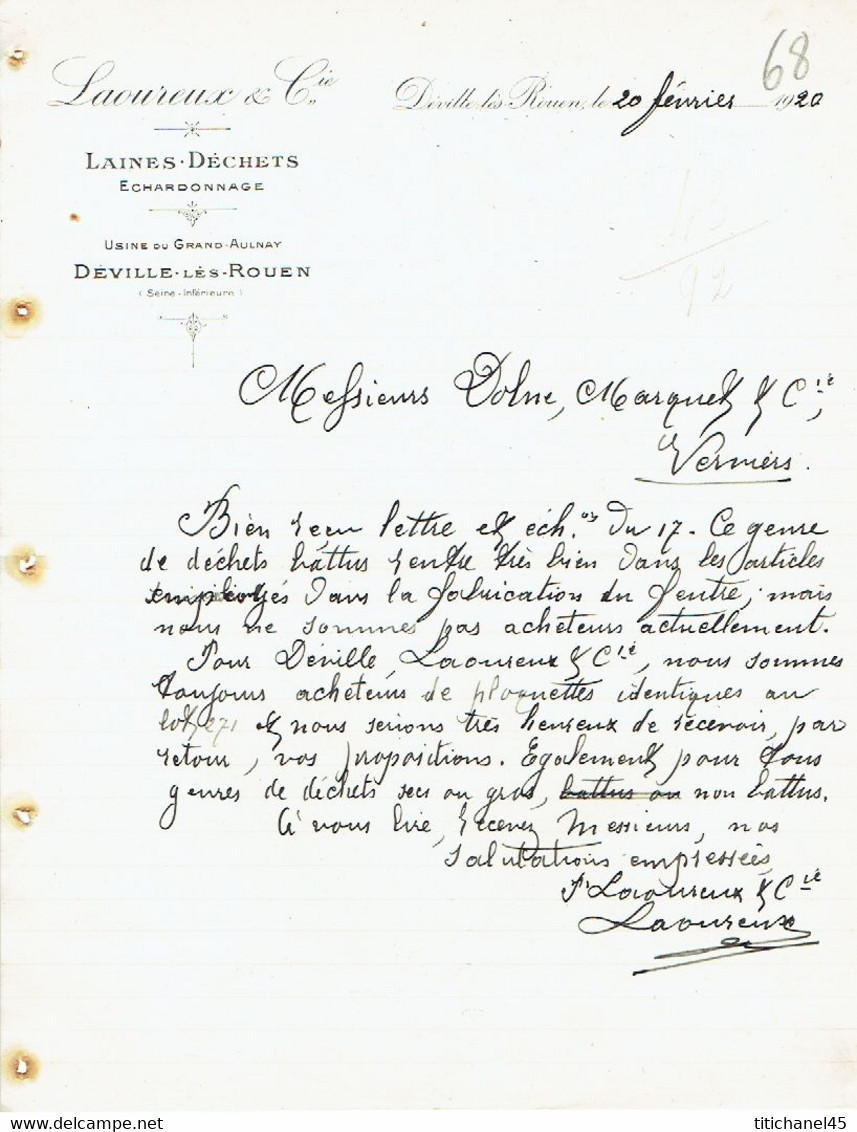 68
Laoureux & Cie
Déville-lès-Rouen, le 20 février 1920
LAINES-DÉCHETS
ECHARDONNAGE
43
92
USINE DU GRAND-AULNAY
DÉVILLE-LÈS-ROUEN
(Seine-Inférieure)
Messieurs Dolne, Marquet & Cie,
Verviers.
Bien reçu lettre et éch.ons du 17. Ce genre
de déchets battus rentre très bien dans les articles
employés dans la fabrication du feutre, mais
nous ne sommes pas acheteurs actuellement.
Pour Déville, Laoureux & Cie, nous sommes
toujours acheteurs de ploquettes identiques au
lot 271 et nous serions très heureux de recevoir, par
retour, vos propositions. Egalement pour tous
genres de déchets secs ou gras, battus ou non battus.
A vous lire, recevez Messieurs, nos
salutations empressées,
Pr Laoureux & Cie
Laoureux
titichanel45